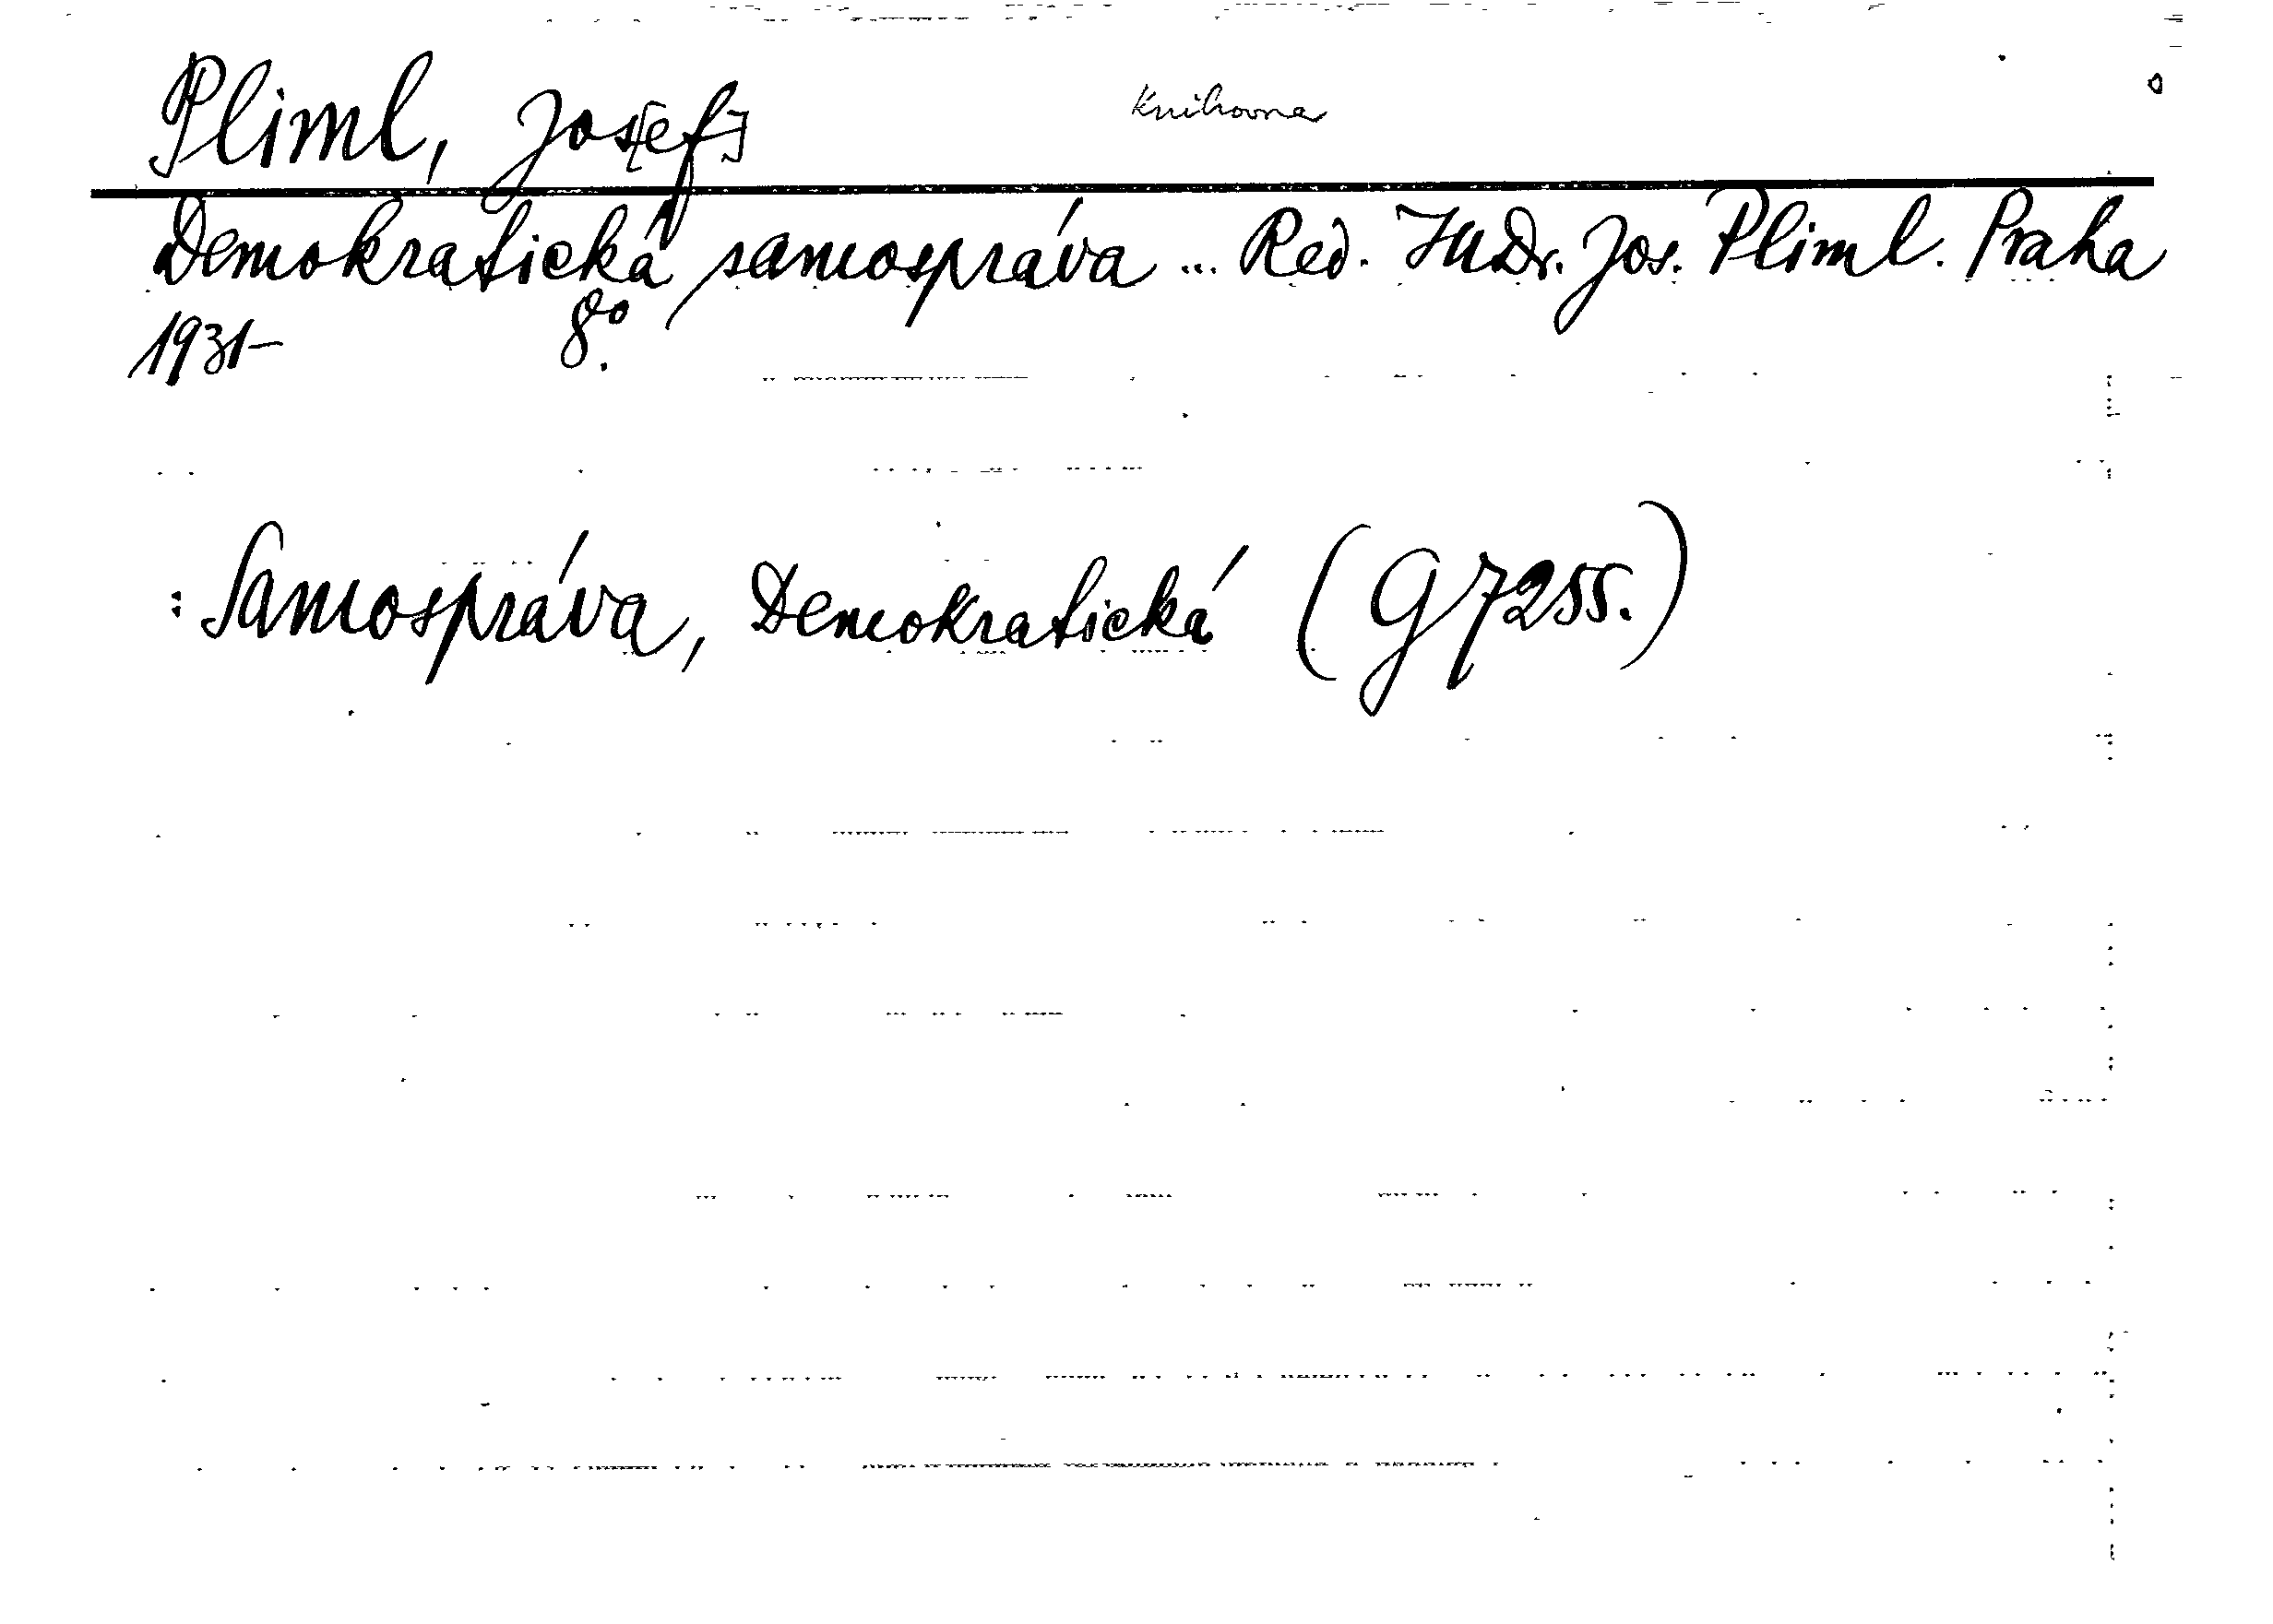 Pliml, Jos[ef] Knihovna
Demokratická samospráva ... Red. JUDr. Jos. Pliml. Praha
1931- 8°.
: Samospráva, Demokratická (G 7255.)